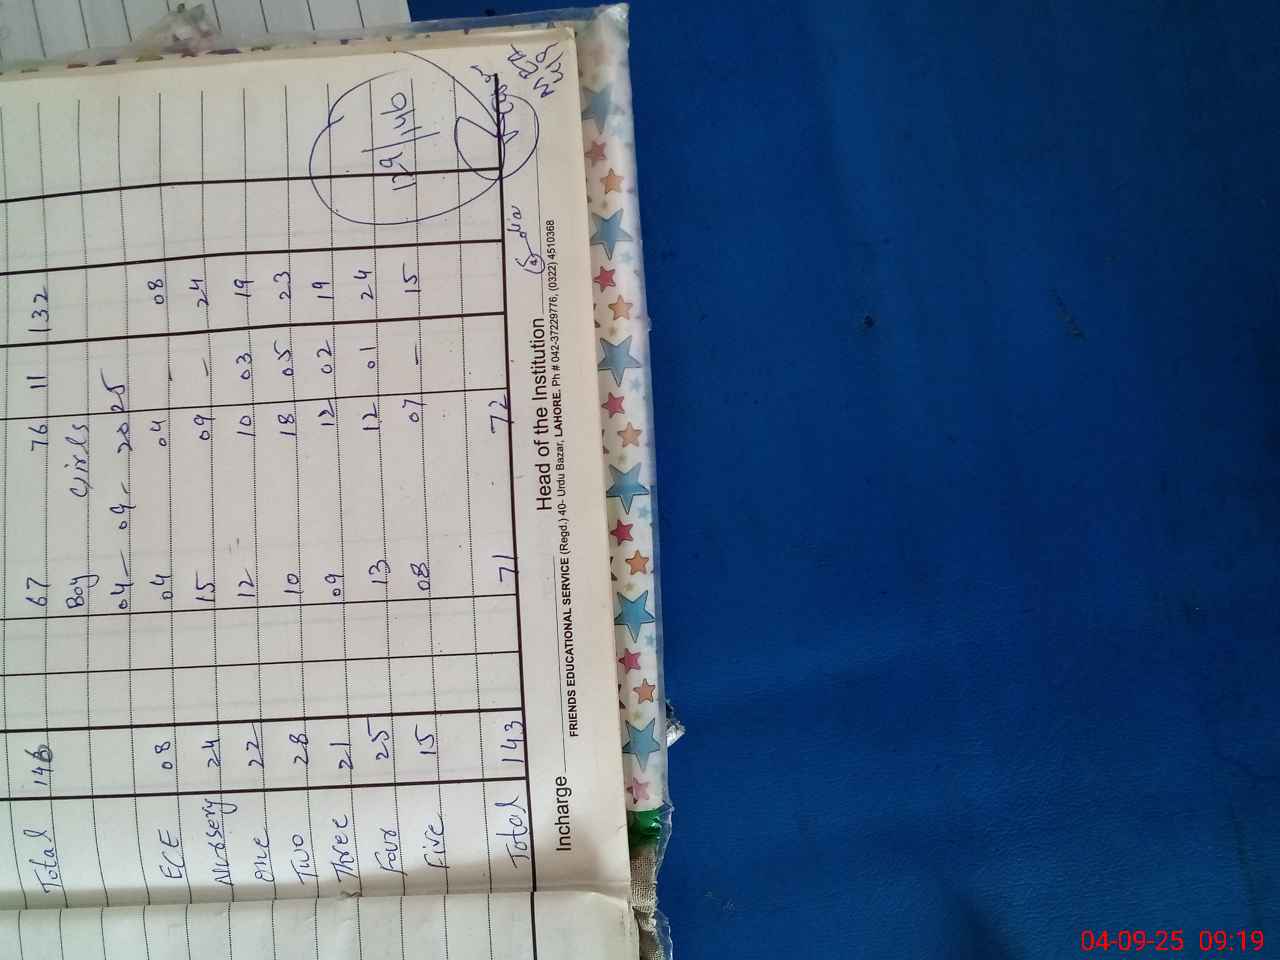 Total 146 67 76 11 132
Boy Girls
04 - 09 - 2025
ECE 08 04 04 - 08
Nussery 24 15 09 - 24
One 22 12 10 03 19
Two 28 10 18 05 23
Three 21 09 12 02 19
Four 25 13 12 01 24
Five 15 08 07 - 15
129/140
Total 143 71 72
Incharge Head of the Institution
FRIENDS EDUCATIONAL SERVICE (Regd.) 40- Urdu Bazar, LAHORE. Ph # 042-37229776, (0322) 4510368
04-09-25 09:19